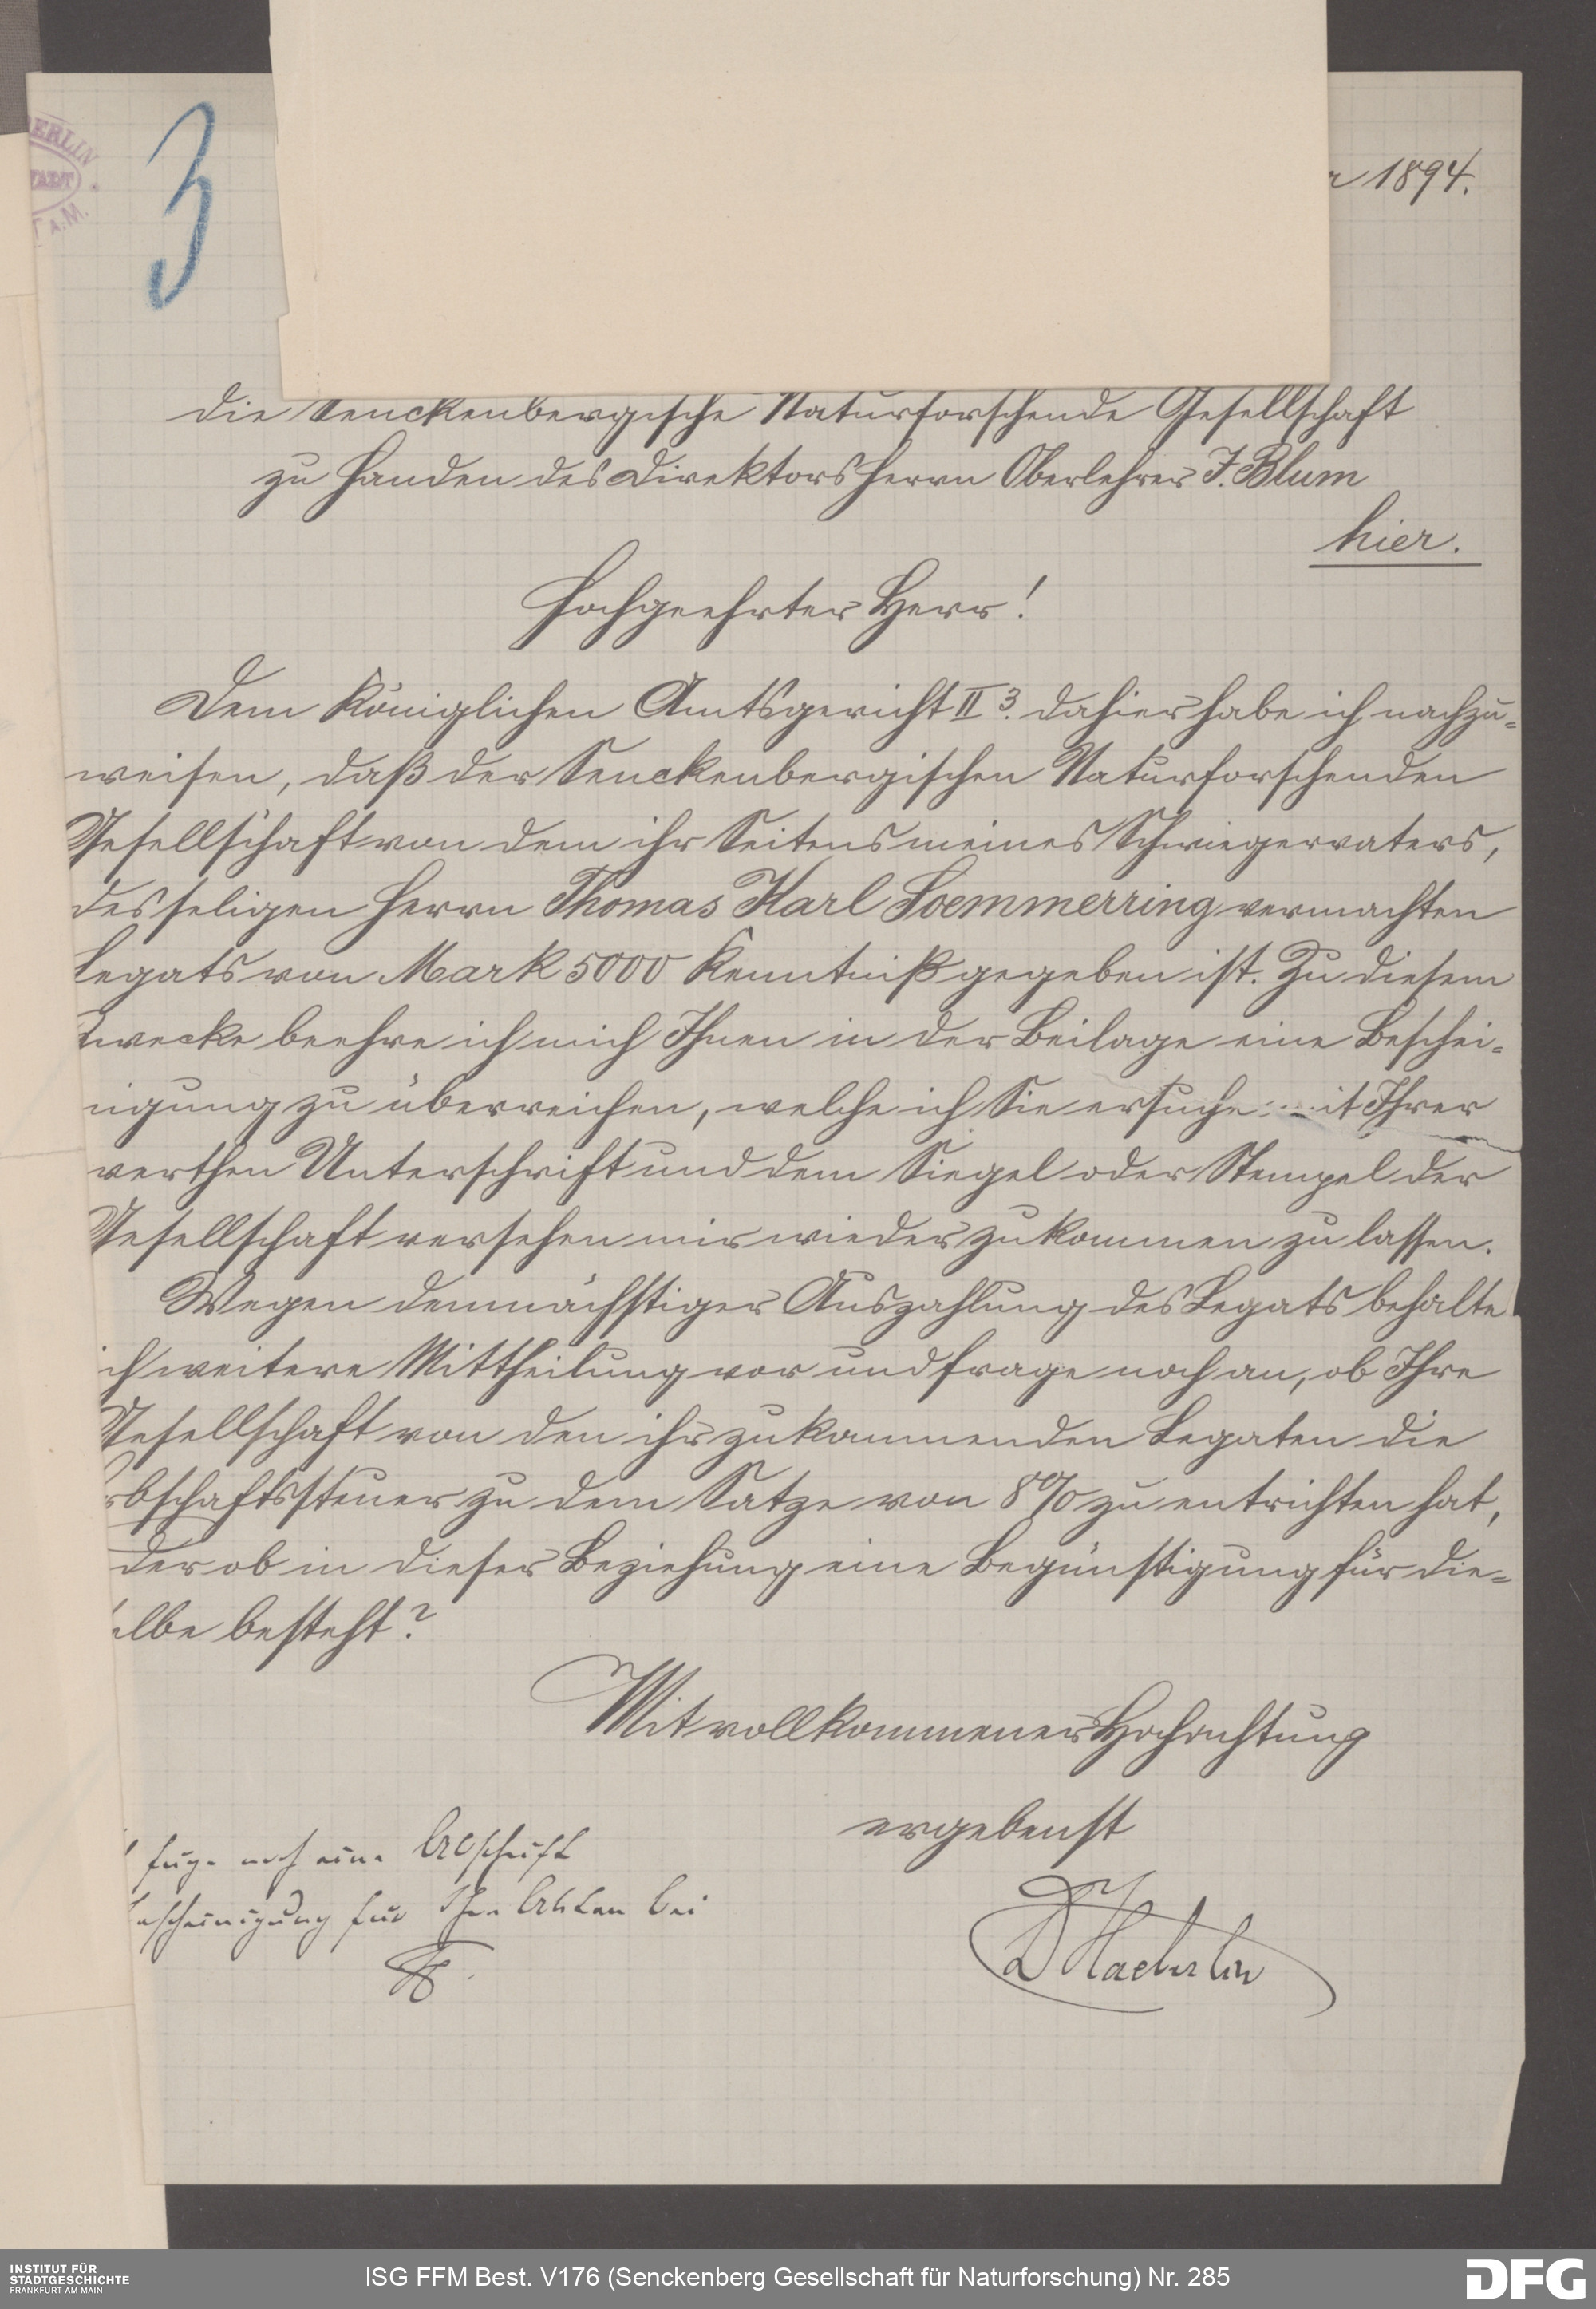 3
BERLIN
STADT
A.M.
r 1894.
die Senckenbergische Naturforschende Gesellschaft
zu Handen des Direktors Herrn Oberlehrer J. Blum
hier.
Hochgeehrter Herr!
Dem Königlichen Amtsgericht II 3. dahier habe ich nachzu-
weisen, daß der Senckenbergischen Naturforschenden
Gesellschaft von dem ihr Seitens meines Schwiegervaters,
des seligen Herrn Thomas Karl Soemmerring vermachten
Legats von Mark 5000 Kenntniß gegeben ist. Zu diesem
Zwecke beehre ich mich Ihnen in der Beilage eine Beschei-
nigung zu überreichen, welche ich Sie ersuche mit Ihrer
werthen Unterschrift und dem Siegel oder Stempel der
Gesellschaft versehen mir wieder zukommen zu lassen.
Wegen demnächstiger Auszahlung des Legats behalte
ich weitere Mittheilung vor und frage noch an, ob Ihre
Gesellschaft von den ihr zukommenden Legaten die
rbschaftssteuer zu dem Satze von 8% zu entrichten hat,
der ob in dieser Beziehung eine Begünstigung für die-
elbe besteht?
Mit vollkommener Hochachtung
ergebenst
D Haeberlin
füge noch eine Abschrift
escheinigung für Ihre Akten bei
INSTITUT FÜR
STADTGESCHICHTE
FRANKFURT AM MAIN
ISG FFM Best. V176 (Senckenberg Gesellschaft für Naturforschung) Nr. 285
DFG